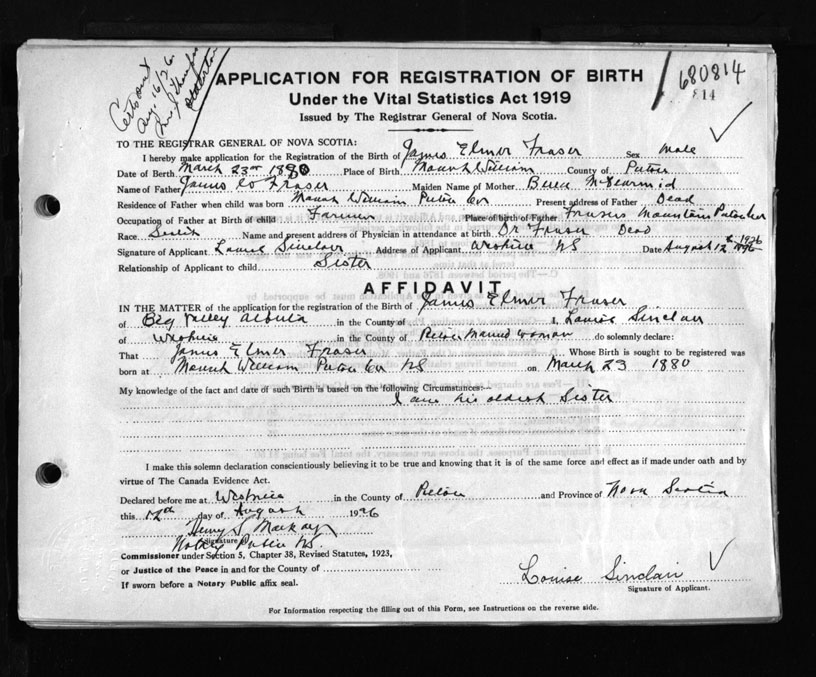 Aug. 16/26.
680814
814
APPLICATION FOR REGISTRATION OF BIRTH
Under the Vital Statistics Act 1919
Issued by The Registrar General of Nova Scotia.
TO THE REGISTRAR GENERAL OF NOVA SCOTIA:
I hereby make application for the Registration of the Birth of James Elmer Fraser Sex male
Date of Birth March 23rd 1880 Place of Birth Mount William County of Pictou
Name of Father James W Fraser Maiden Name of Mother
Residence of Father when child was born Mount William Pictou Co Present address of Father Dead
Occupation of Father at Birth of child Farmer Place of birth of Father Frasers Mountain Pictou Co
Race Scotch Name and present address of Physician in attendance at birth Dr Fraser Dead
Signature of Applicant Louise Sinclair Address of Applicant Westville NS Date August 12 1926
Relationship of Applicant to child Sister
AFFIDAVIT
IN THE MATTER of the application for the registration of the Birth of James Elmer Fraser
of Big Valley Alberta in the County of I, Louise Sinclair
of Westville in the County of Pictou Married woman do solemnly declare:
That James Elmer Fraser Whose Birth is sought to be registered was
born at Mount William Pictou Co NS on March 23 1880
My knowledge of the fact and date of such Birth is based on the following Circumstances:—
I am his oldest Sister
I make this solemn declaration conscientiously believing it to be true and knowing that it is of the same force and effect as if made under oath and by
virtue of The Canada Evidence Act.
Declared before me at Westville in the County of Pictou and Province of Nova Scotia
this 12th day of August 1926
Henry S Mackay
Signature of
Notary Public NS.
Commissioner under Section 5, Chapter 38, Revised Statutes, 1923,
or Justice of the Peace in and for the County of
If sworn before a Notary Public affix seal.
Louise Sinclair
Signature of Applicant.
For Information respecting the filling out of this Form, see Instructions on the reverse side.